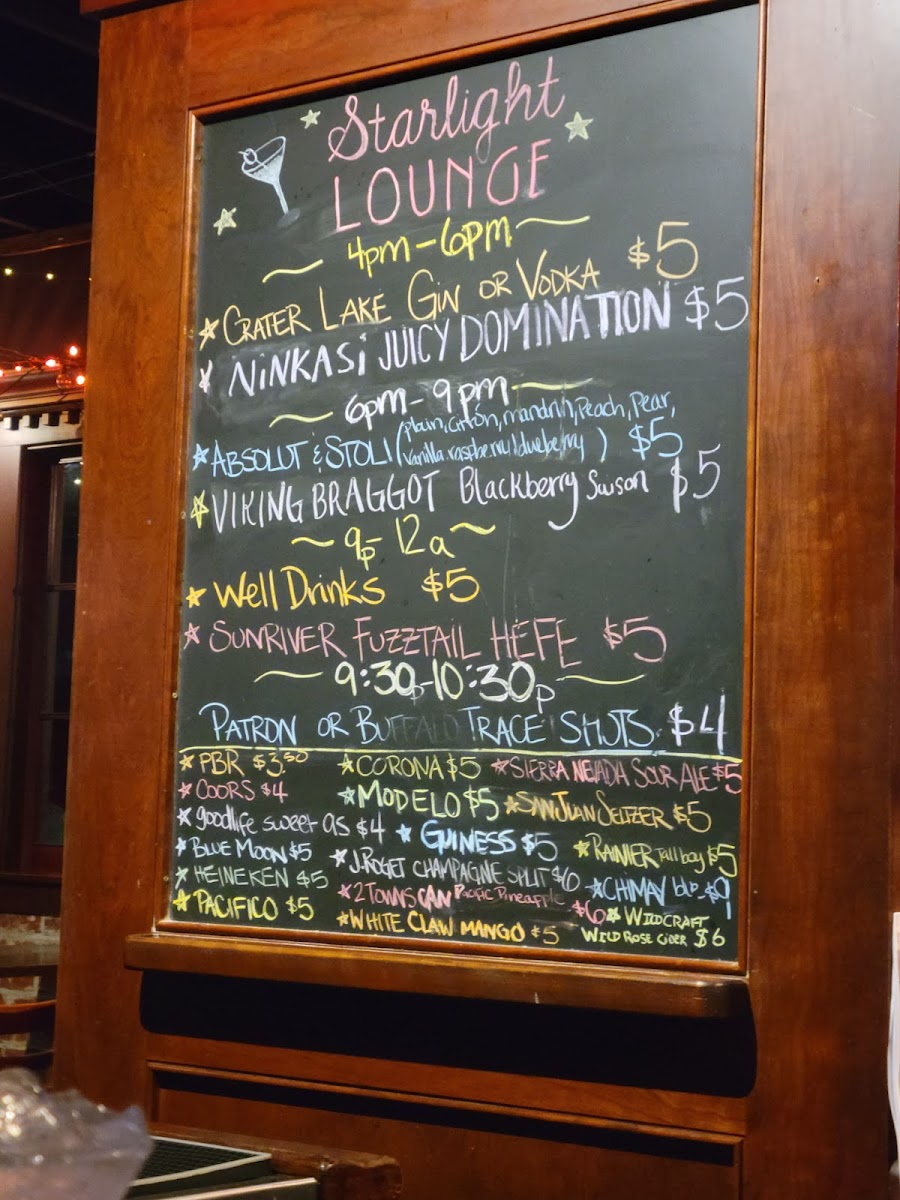 Starlight
LOUNGE
4pm - 6pm
CRATER LAKE GIN OR VODKA $5
NINKASI JUICY DOMINATION $5
6pm - 9pm
ABSOLUT & STOLI (plain, citrón, mandrin, Peach, Pear,
vanilla, raspberry, blueberry) $5
VIKING BRAGGOT Blackberry Swson $5
9p - 12a
Well Drinks $5
SUNRIVER FUZZTAIL HEFE $5
9:30p-10:30p
PATRON OR BUFFALO TRACE SHOTS $4
PBR $3.50
COORS $4
goodlife sweet as $4
BLUE MOON $5
HEINEKEN $5
PACIFICO $5
CORONA $5
MODELO $5
GUINESS $5
J.ROGET CHAMPAGNE SPLIT $6
2 TOWNS CAN Pacific Pineapple $6
WHITE CLAW MANGO $5
SIERRA NEVADA SOUR ALE $5
SAN JUAN SELTZER $5
RAINIER Tallboy $5
CHIMAY blu $9
WILDCRAFT
WILD ROSE CIDER $6